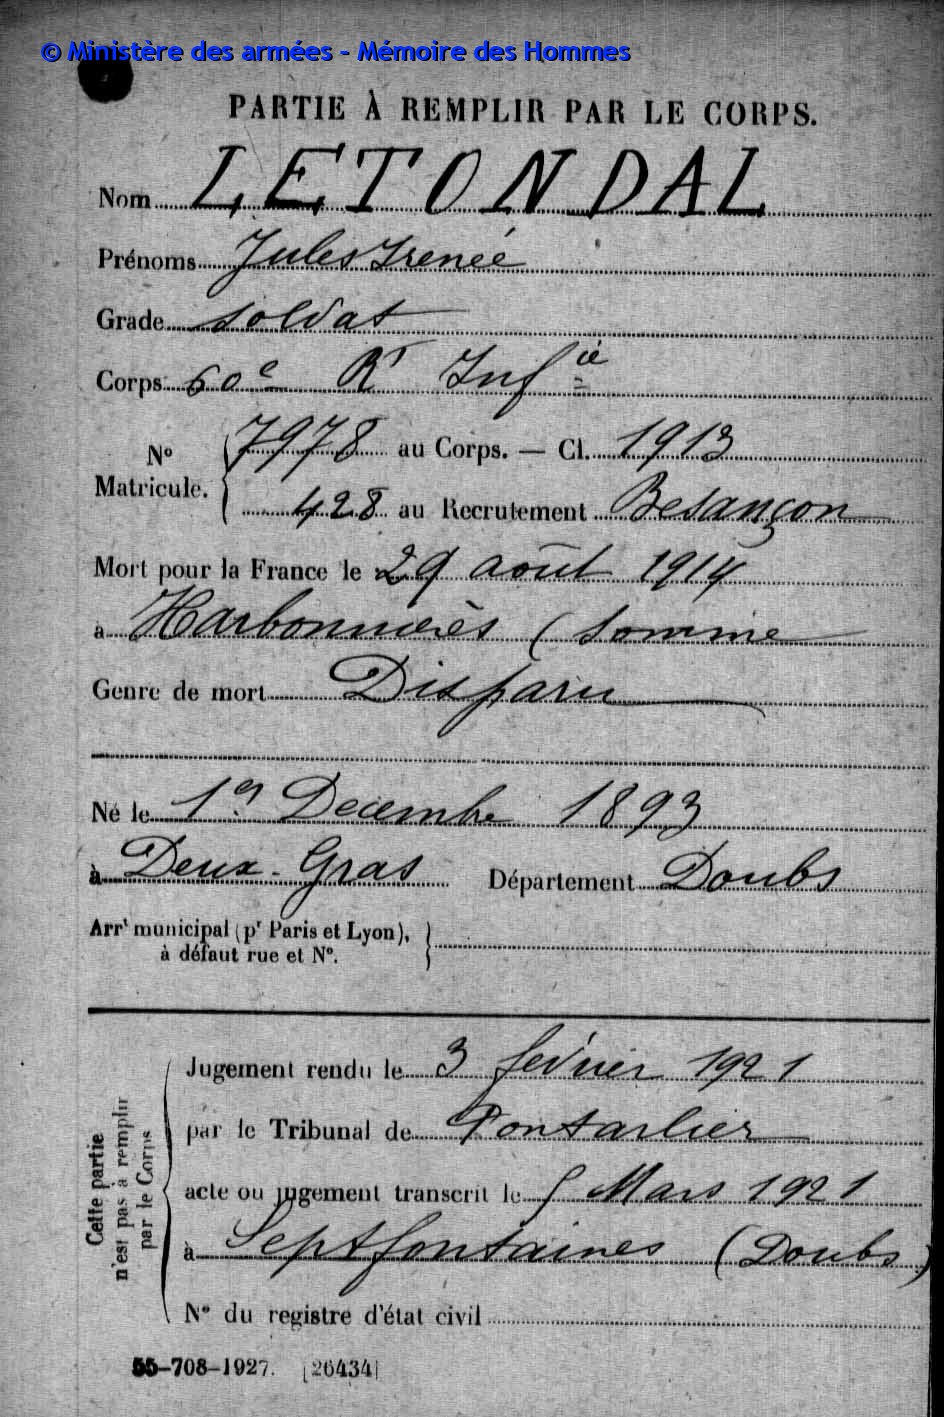 © Ministère des armées - Mémoire des Hommes
PARTIE À REMPLIR PAR LE CORPS.
Nom LETONDAL
Prénoms Jules Irenée
Grade soldat
Corps 60e Rt Infie
No Matricule. { 7978 au Corps. — Cl. 1913
428 au Recrutement Besançon
Mort pour la France le 29 août 1914
à Harbonnières (Somme
Genre de mort Disparu
Né le 1er Decembre 1893
à Deux-Gras Département Doubs
Arrt municipal (pr Paris et Lyon),
à défaut rue et No.
Cette partie
n'est pas à remplir
par le Corps
Jugement rendu le 3 février 1921
par le Tribunal de Pontarlier
acte ou jugement transcrit le 5 Mars 1921
à Septfontaines (Doubs)
No du registre d'état civil
55-708-1927. [26434]